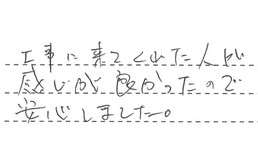 工事に来てくれた人が
感じが良かったので
安心しました。